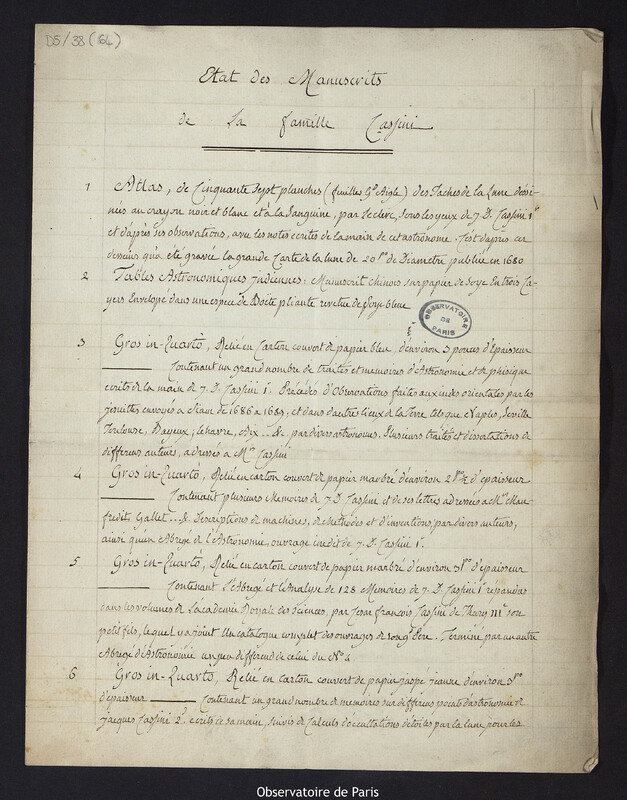 D5/38 (64)
Etat des Manuscrits
de la famille Cassini
1 Atlas, de Cinquante sept planches (feuilles Gd Aigle) des Taches de la Lune dessi-
nées au crayon noir et blanc et à la Sanguine, par le clerc, sous les yeux de J. D. Cassini 1er
et d'après ses observations, avec les notes ecrites de la main de cet astronôme. C'est d'après ces
desseins qu'a été gravée la grande Carte de la lune de 20 po de Diametre publiée en 1680
2 Tables Astronomiques Indiennes: Manuscrit chinois sur papier de soye En trois Ca-
yers Envelopé dans une espece de Boete pliante revetue de soye bleue
OBSERVATOIRE DE PARIS
3 Gros in-Quarto, Relié en Carton couvert de papier bleu, d'environ 3 pouces d'Epaisseur
Contenant un grand nombre de traités et memoires d'Astronomie et de physique
ecrits de la main de J. D. Cassini 1er. Précédés d'Observations faites aux indes orientales par les
jesuites envoyés a Siam de 1686 a 1689; et dans d'autres lieux de la Terre tels que Naples, Seville
Toulouse, Bayeux, le havre, Aix ... &. par divers astronomes. Plusieurs traités et dissertations de
differens auteurs, adressés a Mr Cassini
4 Gros in-Quarto, Relié en carton couvert de papier marbré d'environ 2 po ½ d'epaisseur
Contenant plusieurs Memoires de J. D. Cassini et de ses lettres adressées a Mrs Man-
fredi, Gallet ... &. Descriptions de machines, de Methodes et d'inventions, par divers auteurs,
ainsi qu'un Abregé de l'Astronomie, ouvrage inedit de J. D. Cassini 1er.
5 Gros in-Quarto, Relié en carton couvert de papier marbré d'environ 3 po d'epaisseur
Contenant l'Abregé et l'Analyse de 128 Memoires de J. D. Cassini 1er repandus
dans les volumes de l'academie Royale des sciences, par Cesar françois Cassini de Thury IIIe son
petit fils, lequel y a joint Un catalogue complet des ouvrages de son gd Père. Terminé par un autre
Abregé d'Astronomie un peu different de celui du No 4
6 Gros in-Quarto, Relié en carton couvert de papier jaspé jaune d'environ 3 po
d'epaisseur Contenant un grand nombre de memoires sur differens points d'astronomie de
Jacques Cassini 2e ecrits de sa main, suivis de Calculs d'occultations d'etoiles par la lune pour les
Observatoire de Paris